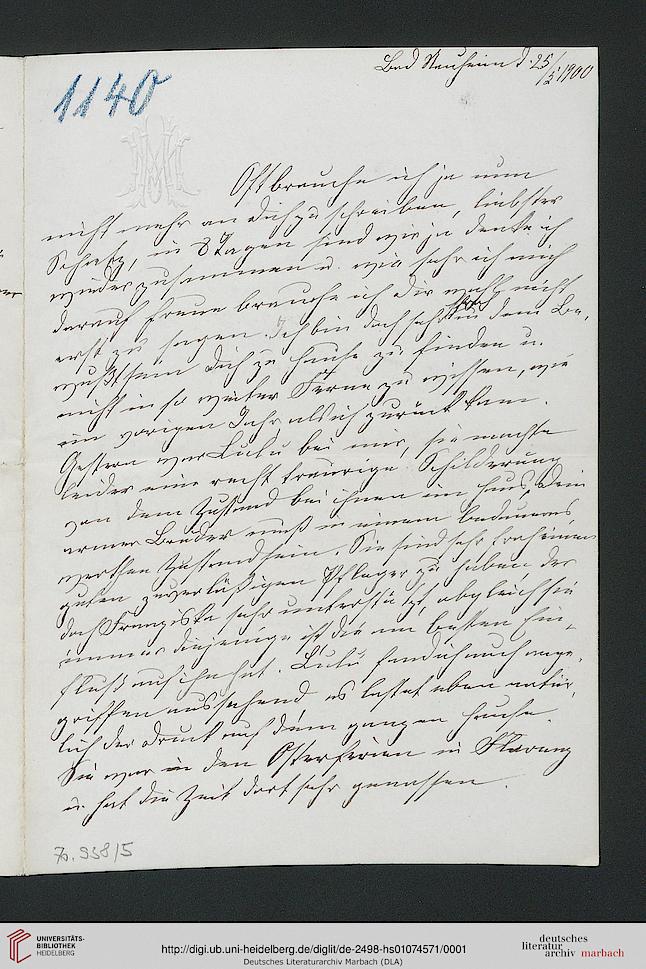 Bad Nauheim d. 25/
/5 1900
1140
Oft brauche ich ja nun
nicht mehr an Dich zu schreiben, liebster
Schatz, in 8 Tagen sind wir ja denke ich
wieder zusammen u. wie sehr ich mich
darauf freue brauche ich Dir wohl nicht
erst zu sagen. Ich bin doch sehr froh in dem Be-
wußtsein Dich zu Hause zu finden u.
nicht in so weiter Ferne zu wissen, wie
im vorigen Jahr, als ich zurück kam.
Gestern war Lulu bei mir, sie machte
leider eine recht traurige Schilderung
von dem Zustand bei ihnen im Haus, Dein
armer Bruder muß in einem bedauerns-
werthen Zustand sein. Sie sind sehr froh einen
guten zuverläßigen Pfleger zu haben, der
doch Franziska sehr unterstützt, obgleich sie
immer diejenige ist die am besten Ein-
fluß auf ihn hat. Lulu fand ich auch ange-
griffen aussehend es lastet eben natür-
lich der Druck auf dem ganzen Hause.
Sie war in den Osterferien in Florenz
u. hat die Zeit dort sehr genossen.
70. 938/5
UNIVERSITÄTS-
BIBLIOTHEK
HEIDELBERG
http://digi.ub.uni-heidelberg.de/diglit/de-2498-hs01074571/0001
Deutsches Literaturarchiv Marbach (DLA)
deutsches
literatur
archiv marbach